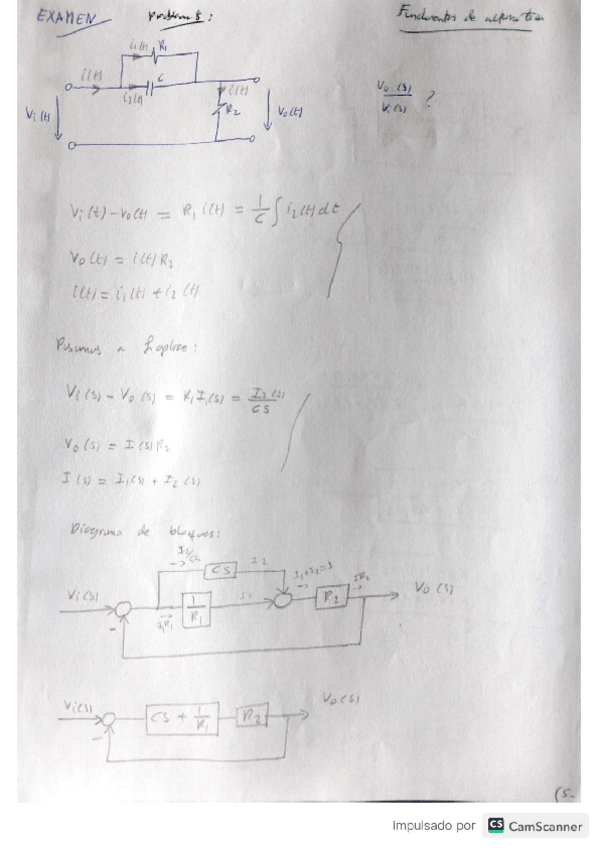 EXAMEN Problem 8: Fundamentos de
i₁(t) R₁
i(t) C
i₂(t) i(t)
Vi(t) R₂ Vo(t)
Vo(s)
Vi(s) ?
Vi(t) - Vo(t) = R₁ i(t) = 1/C ∫ i₂(t) dt
Vo(t) = i(t) R₂
i(t) = i₁(t) + i₂(t)
Pasamos a Laplace:
Vi(s) - Vo(s) = R₁ I₁(s) = I₂(s)/CS
Vo(s) = I(s) R₂
I(s) = I₁(s) + I₂(s)
Diagrama de bloques:
CS I₂ I₁+I₂=I
Vi(s) I₁R₁ 1/R₁ I₁ R₂ IR₂ Vo(s)
-
Vi(s) CS + 1/R₁ R₂ Vo(s)
-
(5.
Impulsado por CS CamScanner